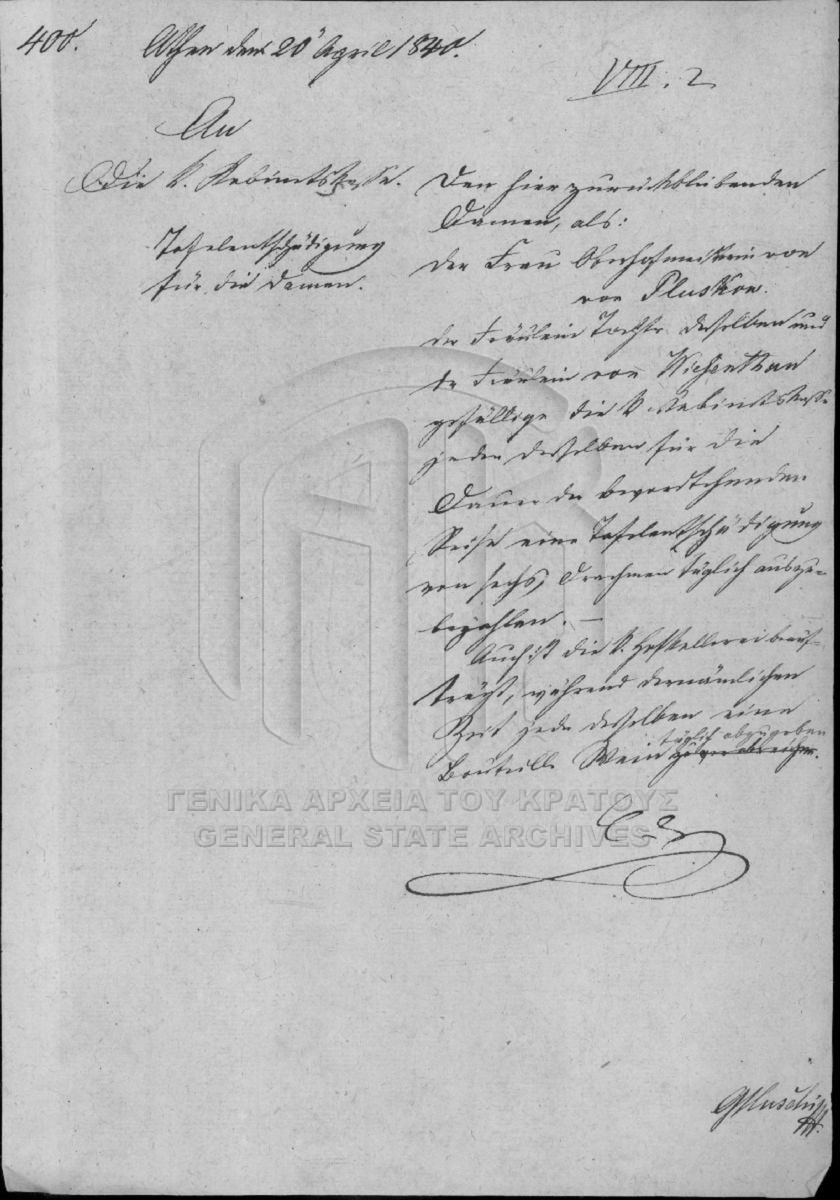 400.
Athen den 20 April 1840.
VIII. 2
An
Die k. Kabinetskasse.
Tafelentschädigung
für die Damen.
Den hier zurückbleibenden
Damen, als:
der Frau Oberhofmeisterin von
von Pluskow.
der Fräulein Tochter derselben und
der Fräulein von Wiesenthau
gefällige die k. Kabinetskasse
jeder derselben für die
Dauer der bevorstehenden
Reise eine Tafelentschädigung
von sechs Drachmen täglich auszu-
bezahlen. –
Auch ist die k. Hofkellerei beauf-
tragt, während der nämlichen
Zeit jeder derselben eine
täglich abzugeben
Bouteille Wein
ΓΕΝΙΚΑ ΑΡΧΕΙΑ ΤΟΥ ΚΡΑΤΟΥΣ
GENERAL STATE ARCHIVES